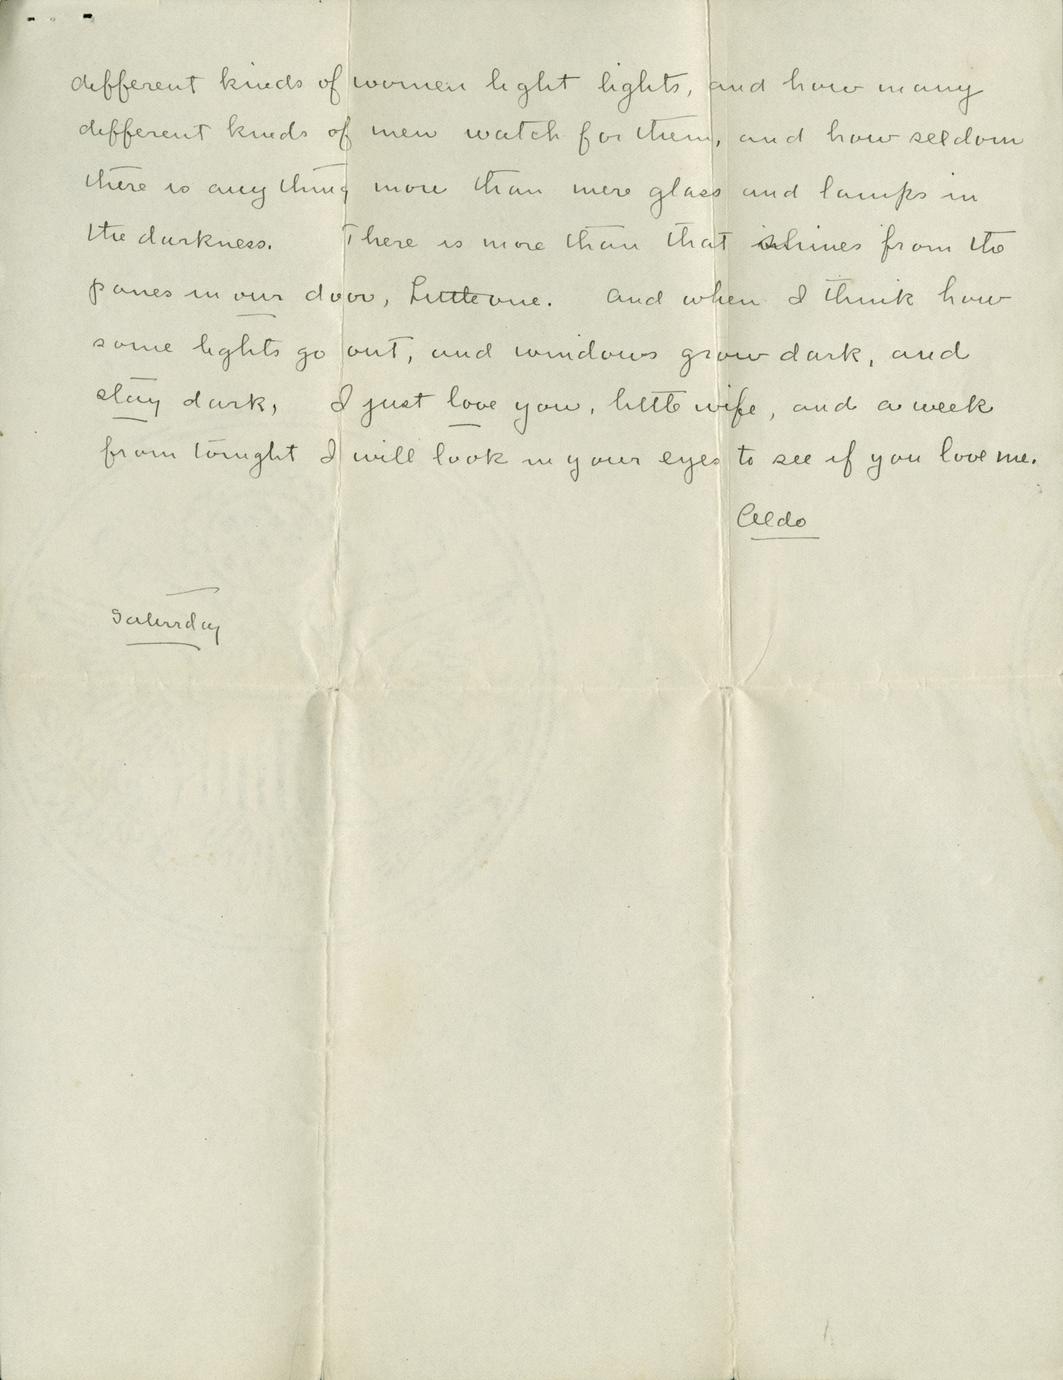 different kinds of women light lights, and how many
different kinds of men watch for them, and how seldom
there is anything more than mere glass and lamps in
the darkness. There is more than that shines from the
panes in our door, Little one. And when I think how
some lights go out, and windows grow dark, and
stay dark, I just love you, little wife, and a week
from tonight I will look in your eyes to see if you love me.
Aldo
Saturday